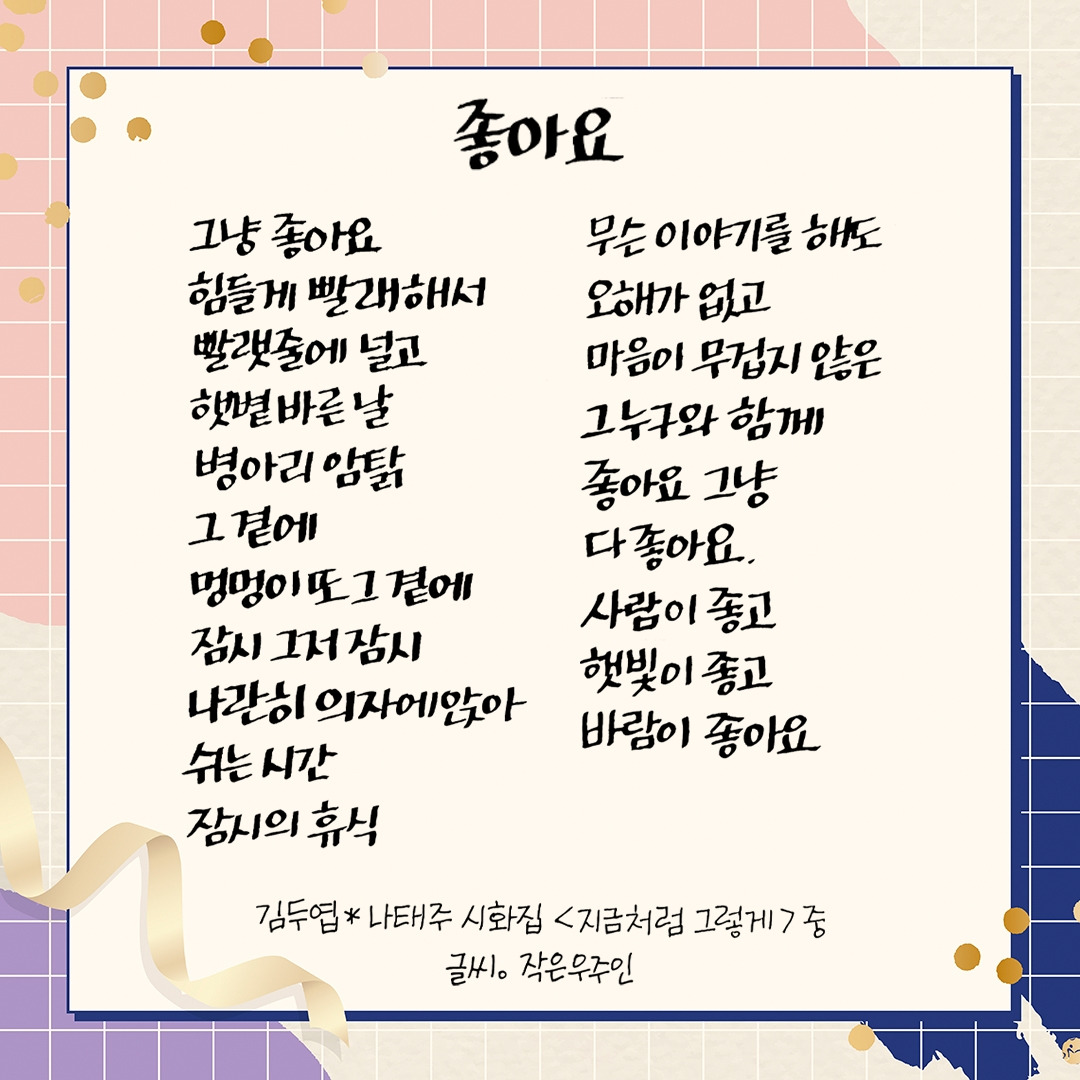 좋아요
그냥 좋아요
힘들게 빨래해서
빨랫줄에 널고
햇볕 바른 날
병아리 암탉
그 곁에
멍멍이 또 그 곁에
잠시 그저 잠시
나란히 의자에 앉아
쉬는 시간
잠시의 휴식
무슨 이야기를 해도
오해가 없고
마음이 무겁지 않은
그 누구와 함께
좋아요 그냥
다 좋아요.
사람이 좋고
햇빛이 좋고
바람이 좋아요
김두엽*나태주 시화집 <지금처럼 그렇게> 중
글씨。 작은우주인